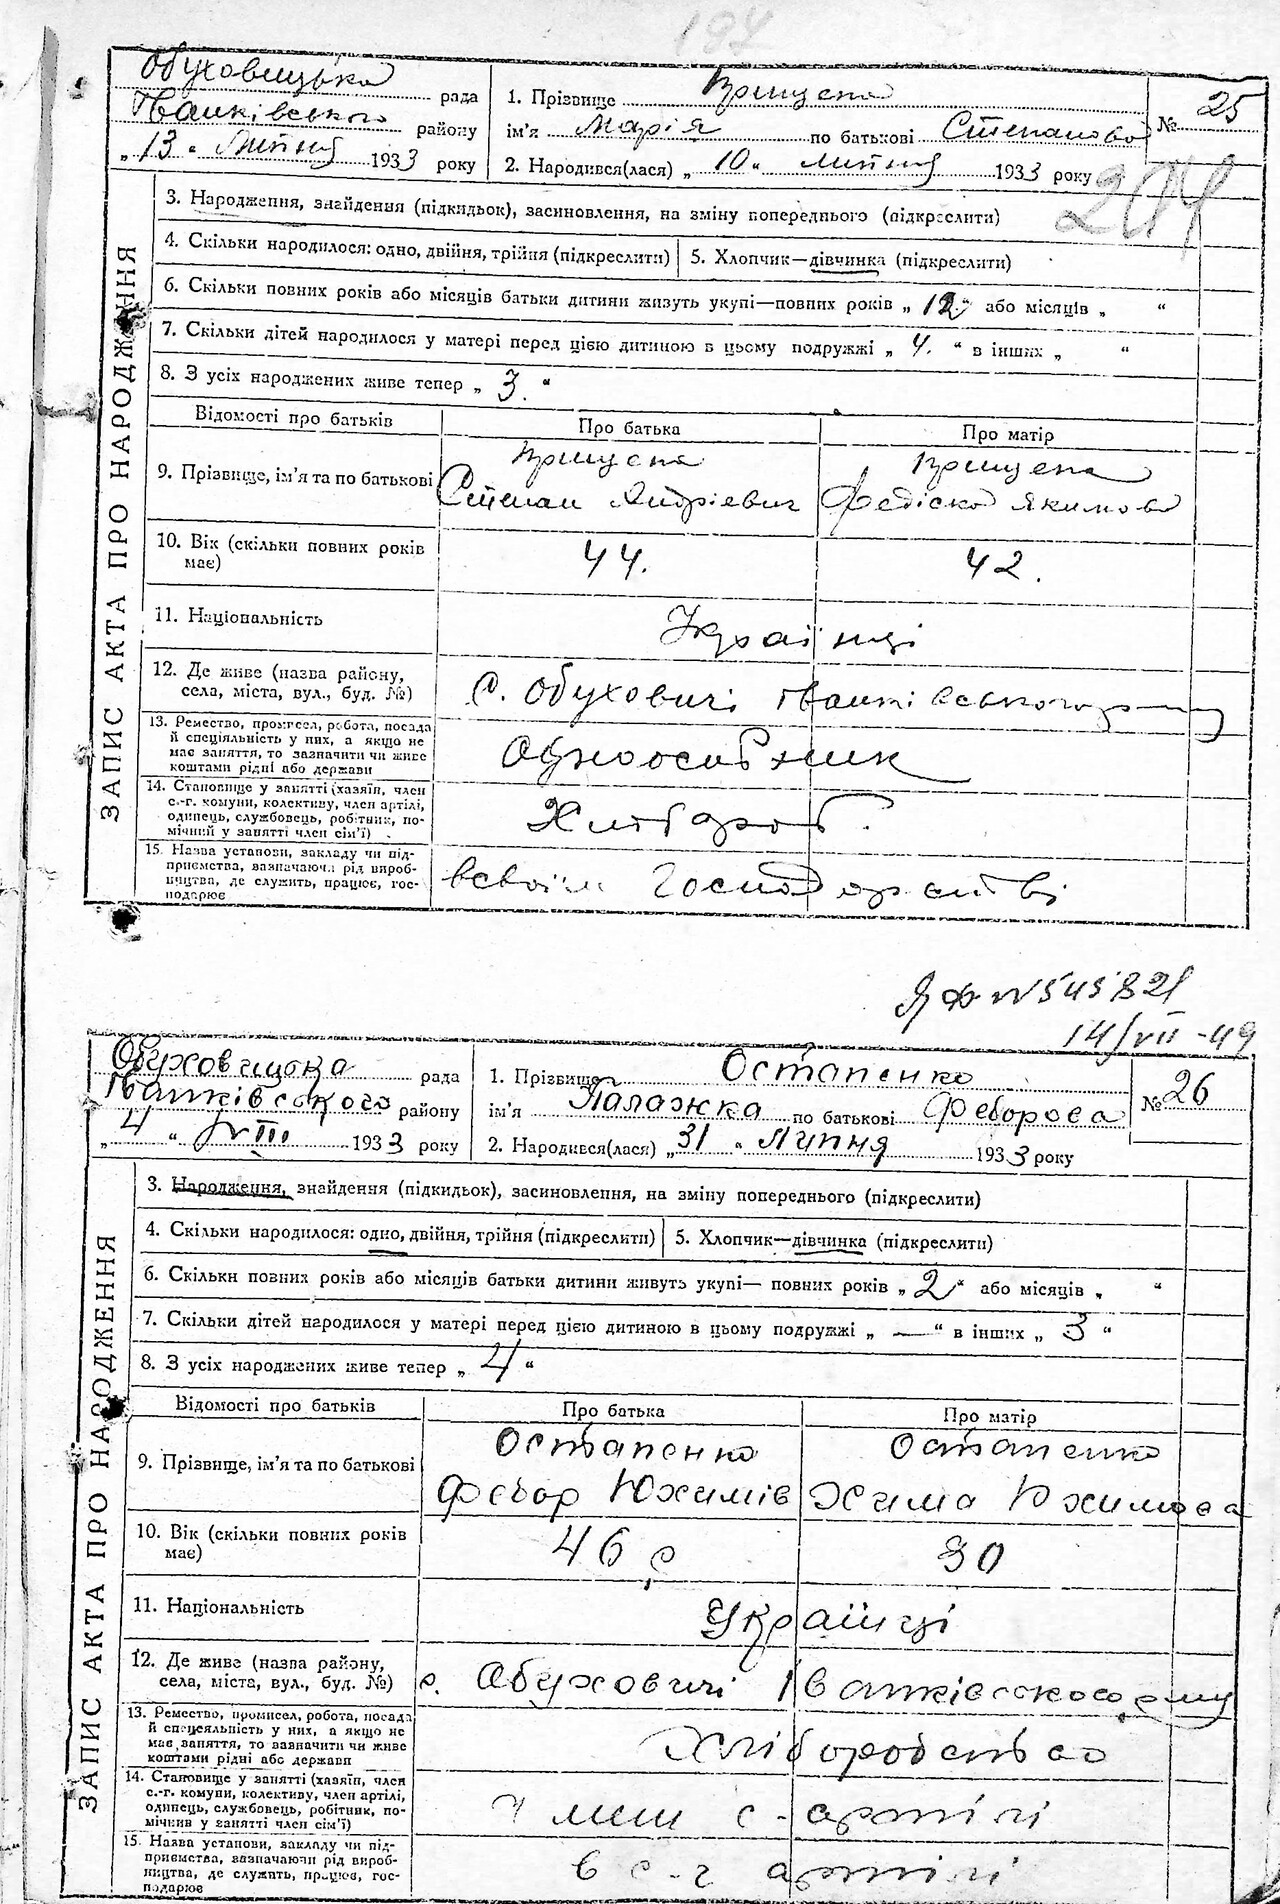 194
Обуховицька рада
Іванківського району
„ 13 " Липня 1933 року
1. Прізвище Прищепа
ім'я Марія по батькові Степанова
2. Народився(лася) „ 10 " липня 1933 року
№ 25
204
ЗАПИС АКТА ПРО НАРОДЖЕННЯ
3. Народження, знайдення (підкидьок), засиновлення, на зміну попереднього (підкреслити)
4. Скільки народилося: одно, двійня, трійня (підкреслити) 5. Хлопчик—дівчинка (підкреслити)
6. Скільки повних років або місяців батьки дитини живуть укупі—повних років „ 12 " або місяців „ "
7. Скільки дітей народилося у матері перед цією дитиною в цьому подружжі „ 4. " в інших „ "
8. З усіх народжених живе тепер „ 3. "
Відомості про батьків Про батька Про матір
9. Прізвище, ім'я та по батькові
Прищепа Прищепа
Степан Андрієвич Федіска Якимова
10. Вік (скільки повних років має) 44. 42.
11. Національність Українці
12. Де живе (назва району, села, міста, вул., буд. №) с. Обуховичі Іванківського району
13. Ремество, промисел, робота, посада
й спеціяльність у них, а якщо не
має заняття, то зазначити чи живе
коштами рідні або держави
Одноосібник
14. Становище у занятті (хазяїн, член
с.-г. комуни, колективу, член артілі,
одинець, службовець, робітник, по-
мічний у занятті член сім'ї)
Хлібороб.
15. Назва установи, закладу чи під-
приємства, вазначаючи рід вироб-
ництва, де служить, працює, гос-
подарює
в своїм господарстві
ЯФ N 545821
14/VII -49
Обуховицька рада
Іванківського району
„ 4 " VIII 1933 року
1. Прізвище Остапенко
ім'я Палажка по батькові Федорова
2. Народився(лася) „ 31 " Липня 1933 року
№ 26
ЗАПИС АКТА ПРО НАРОДЖЕННЯ
3. Народження, знайдення (підкидьок), засиновлення, на зміну попереднього (підкреслити)
4. Скільки народилося: одно, двійня, трійня (підкреслити) 5. Хлопчик—дівчинка (підкреслити)
6. Скільки повних років або місяців батьки дитини живуть укупі— повних років „ 2 " або місяців „ "
7. Скільки дітей народилося у матері перед цією дитиною в цьому подружжі „ — " в інших „ 3 "
8. З усіх народжених живе тепер „ 4 "
Відомості про батьків Про батька Про матір
9. Прізвище, ім'я та по батькові
Остапенко Остапенко
Федор Юхимів Хима Юхимова
10. Вік (скільки повних років має) 46 30
11. Національність Українці
12. Де живе (назва району, села, міста, вул., буд. №) с. Обуховичі Іванківського району
13. Ремество, промисел, робота, посада
й спецеяльність у них, а якщо не
має заняття, то вазначити чи живе
коштами рідні або держави
Хліборобство
14. Становище у занятті (хазяїн, член
с.-г. комуни, колективу, член артілі,
одинець, службовець, робітник, по-
мічник у занятті член сім'ї)
Член с-артілі
15. Назва установи, закладу чи під-
приємства, зазначаючи рід вироб-
ництва, де служить, працює, гос-
подарює
в с-г артілі